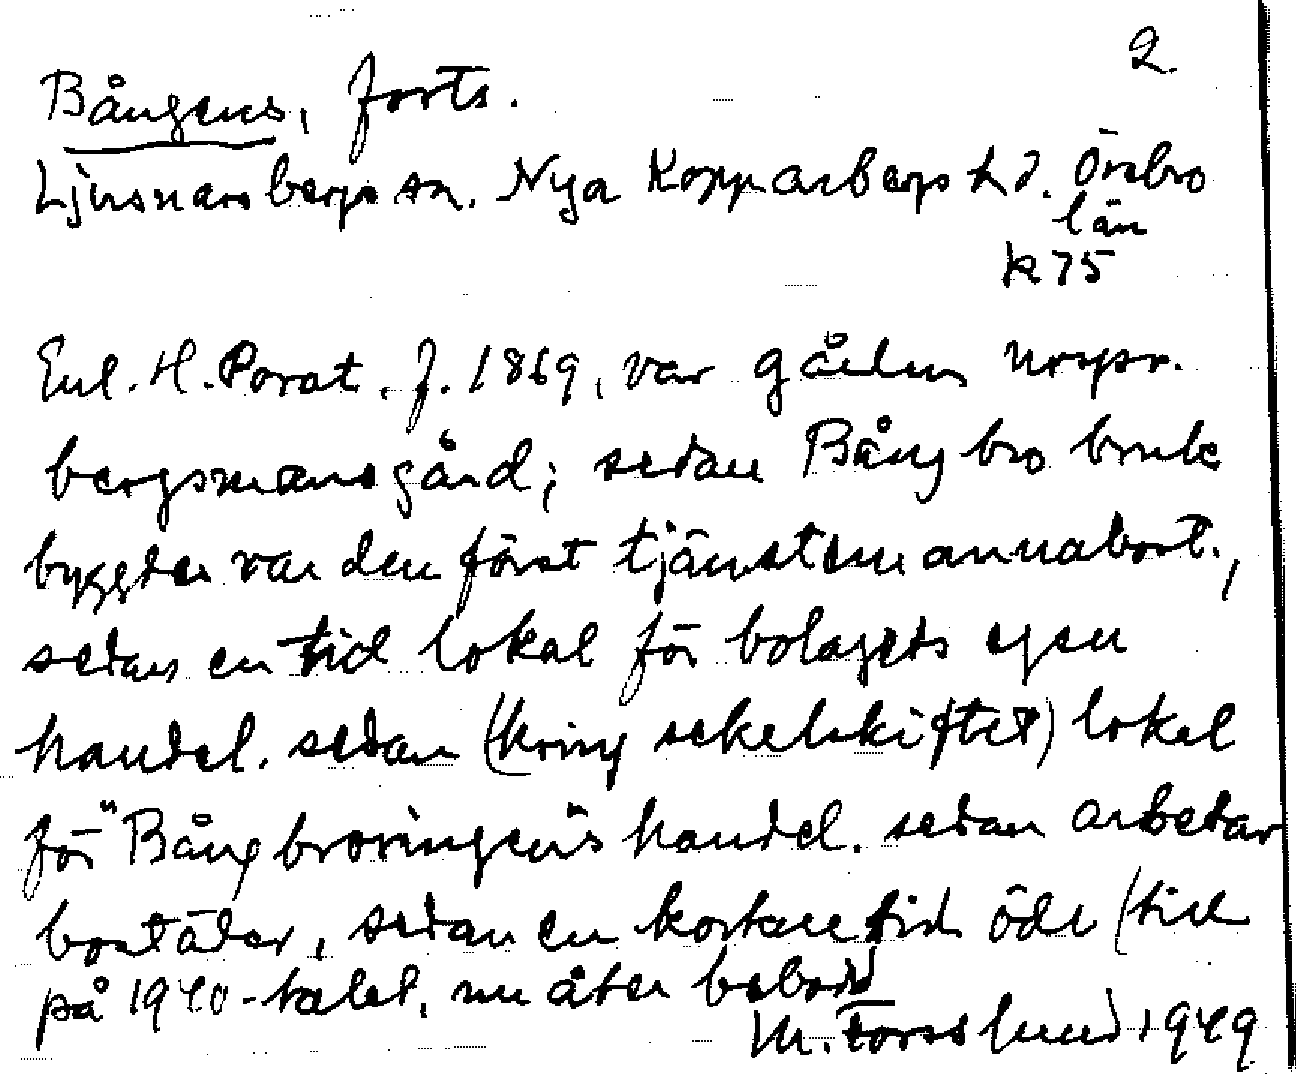 2.
Bångens, forts.
Ljusnarsbergs sn. Nya Kopparbergs hd. Örebro
län
k 75
Enl. H. Porat, f. 1869, var gården urspr.
bergsmansgård; sedan Bångbro bruk
byggdes var den först tjänstemannabost.,
sedan en tid lokal för bolagets egen
handel. sedan (kring sekelskiftet) lokal
för "Bångbroringen"s handel. sedan arbetar
bostäder, sedan en kortare tid öde (tid
på 1940-talet, nu åter bebodd
M. Forsslund 1949